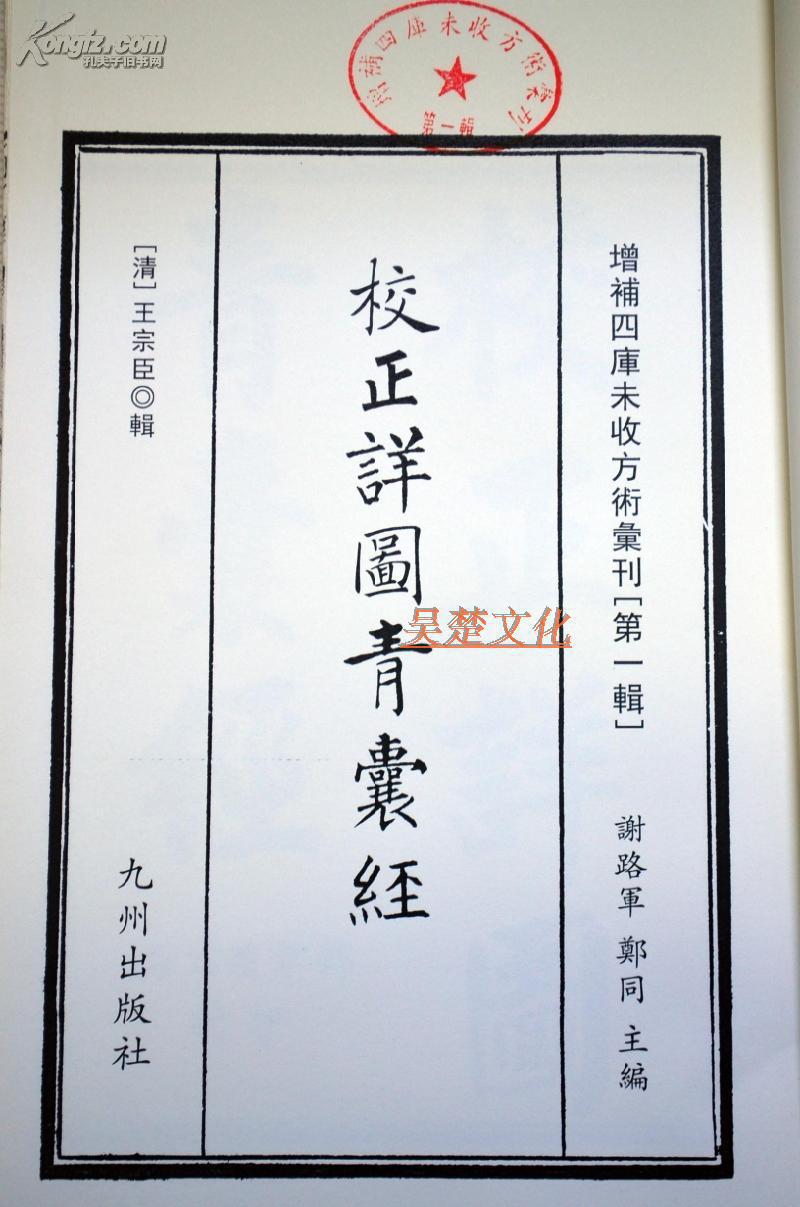 Kongfz.com
孔夫子旧书网
增補四庫未收方術彙刊
第一輯
增補四庫未收方術彙刊[第一輯]
謝路軍 鄭同 主編
校正詳圖青囊經
吴楚文化
[清]王宗臣◎輯
九州出版社